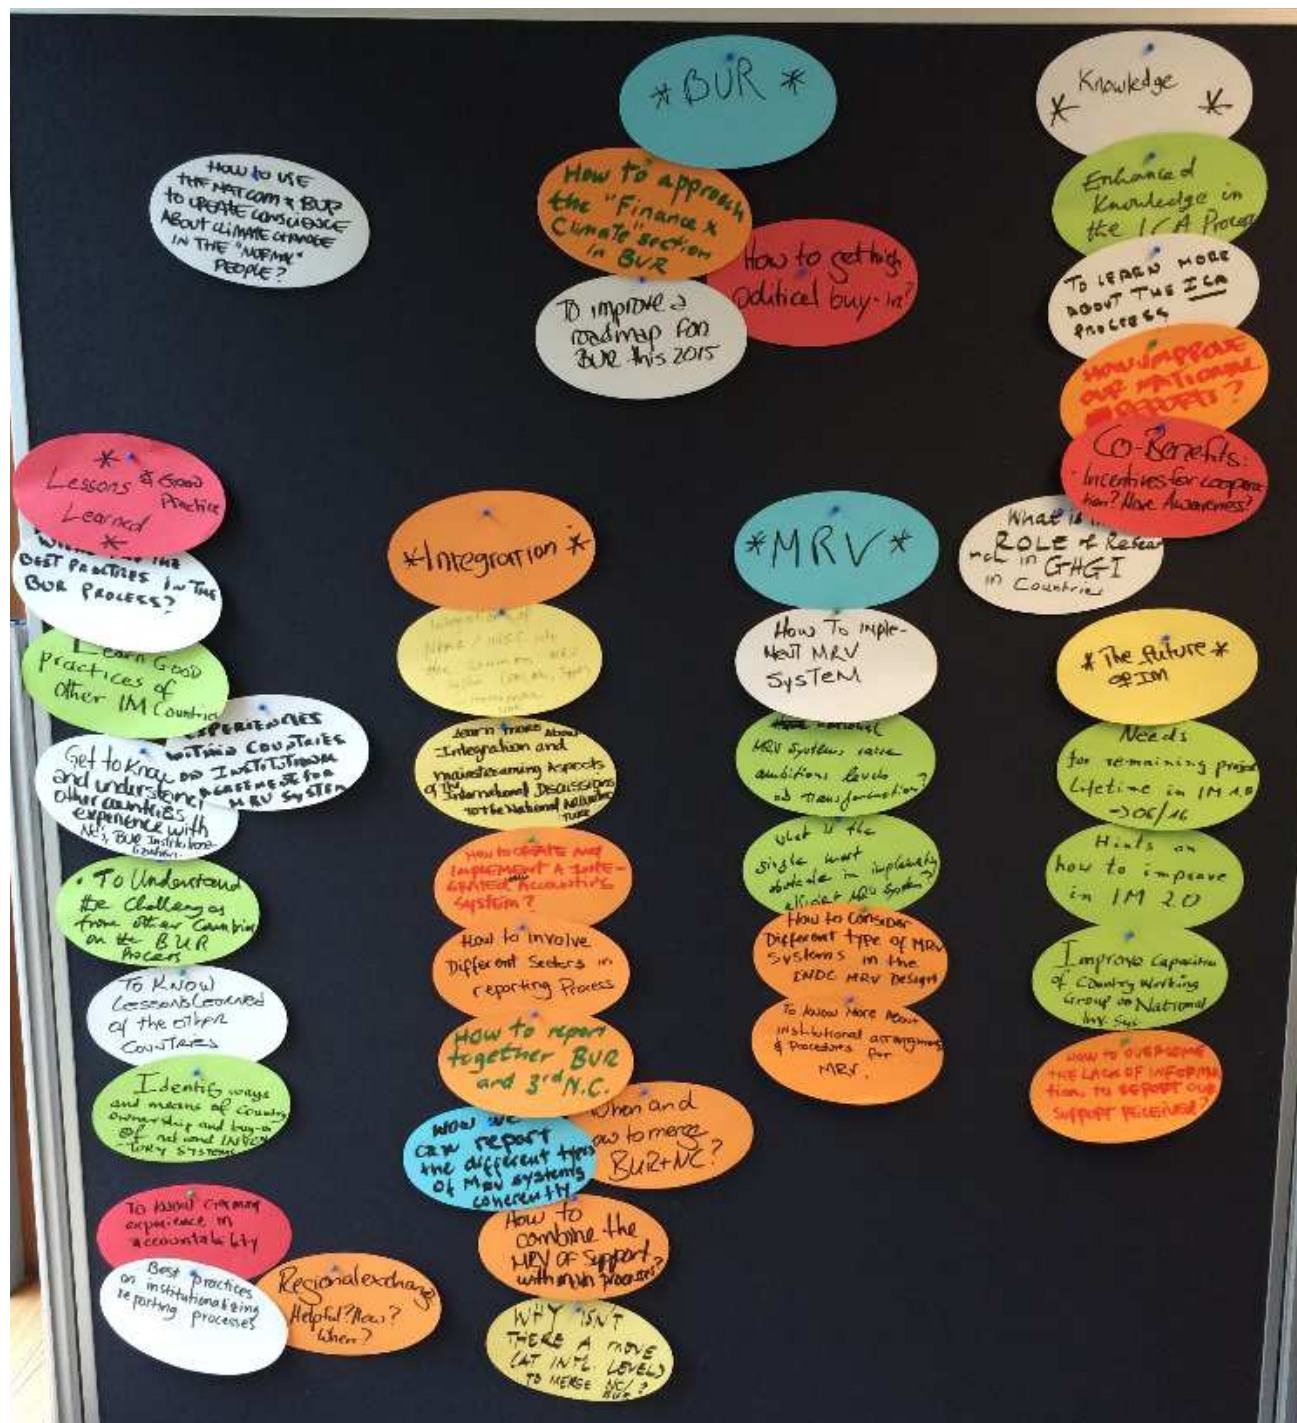 HOW to USE
THE NATCOM & BUR
to CREATE CONSCIENCE
ABOUT CLIMATE CHANGE
IN THE "NORMAL"
PEOPLE?
* BUR *
How to approach
the "Finance &
Climate" section
in BUR
How to get high
political buy-in?
To improve a
roadmap for
BUR this 2015
Knowledge
* *
Enhanced
Knowledge in
the ICA Process
To LEARN MORE
ABOUT THE ICA
PROCESS
HOW IMPROVE
OUR NATIONAL
REPORTS?
Co-Benefits:
· Incentives for coopera-
tion? More Awareness?
What is
ROLE of Resear
rch in GHGI
in Countries
*
Lessons & Good
Practice
Learned
*
THE
BEST PRACTICES IN THE
BUR PROCESS?
Learn GOOD
practices of
other IM Countries
EXPERIENCES
WITHIN COUNTRIES
ON INSTITUTIONAL
AGREEMENTS FOR
MRV SYSTEM
Get to know
and understand
other countries
experience with
NC's, BUR Institutiona-
lization
· To Understand
the challenges
from other Countries
on the BUR
Process
TO KNOW
Lessons Learned
of the other
COUNTRIES
Identify ways
and means of Country
ownership and buy-in
of national INVEN
-TORY SYSTEMS
To know German
experience in
accountability
Best practices
on institutionalizing
reporting processes
Regional exchange
Helpful? How?
When?
* Integration *
Integration of
NAMA /
the common MRV
Learn more About
-Integration and
mainstreaming Aspects
of the International Discussions
to the National
How to CREATE AND
IMPLEMENT A INTE-
GRATED ACCOUNTING
SYSTEM?
How to involve
Different Sectors in
reporting Process
How to report
together BUR
and 3rd N.C.
HOW WE
can report
the different types
of MRV systems
coherently
When and
how to merge
BUR+NC?
How to
combine the
MRV OF Support
with main processes?
WHY ISN'T
THERE A MOVE
(AT INTL. LEVEL)
TO MERGE NC/
BUR?
* MRV *
How To Imple-
ment MRV
SysTeM
national
MRV Systems raise
ambitions levels
transformation?
What is the
single most
obstacle in implementing
efficient MRV System?
How to Consider
Different type of MRV
Systems in the
INDC MRV Design
To know More About
institutional arrangments
& Procedures for
MRV.
* The future *
of IM
Needs
for remaining project
Lifetime in IM 1.0
-> 06/16
Hints on
how to improve
in IM 2.0
Improve Capacities
of Country Working
Group on National
Inv. Sys
HOW TO OVERCOME
THE LACK OF INFORMA
tion, TO REPORT OUR
SUPPORT RECEIVED?